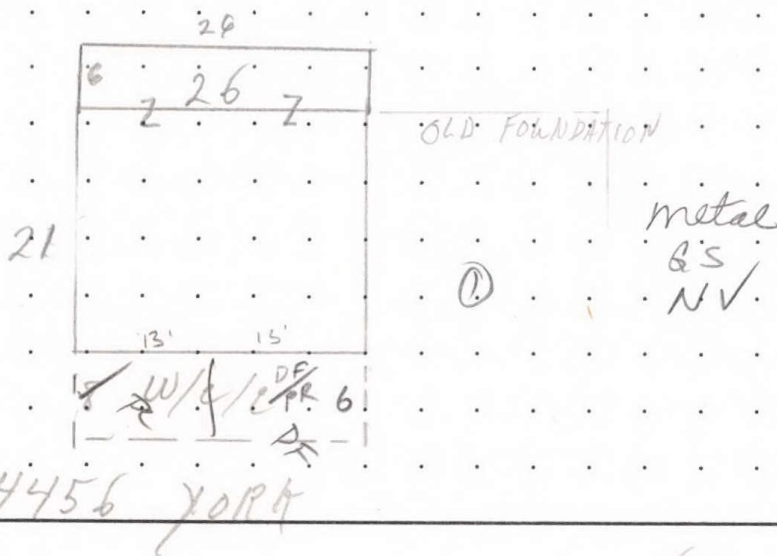 26
6 26
Z Z
OLD FOUNDATION
21
metal
GS
NV
1
13' 13'
W/
DF/
PR 6
4456 YORK